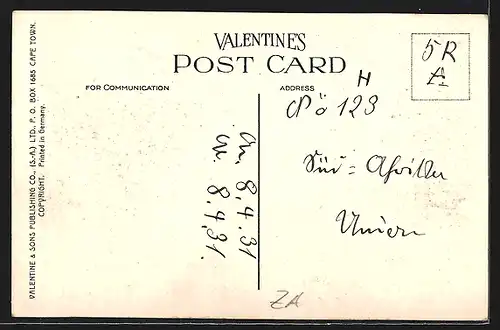 VALENTINE & SONS PUBLISHING CO., (S.-A.) LTD., P. O. BOX 1685 CAPE TOWN.
COPYRIGHT. Printed in Germany.
VALENTINE'S
POST CARD
FOR COMMUNICATION
ADDRESS
5R
A
H
Pö 123
Süd=Afrika
Union
An. 8.4.31
W. 8.4.31.
ZA